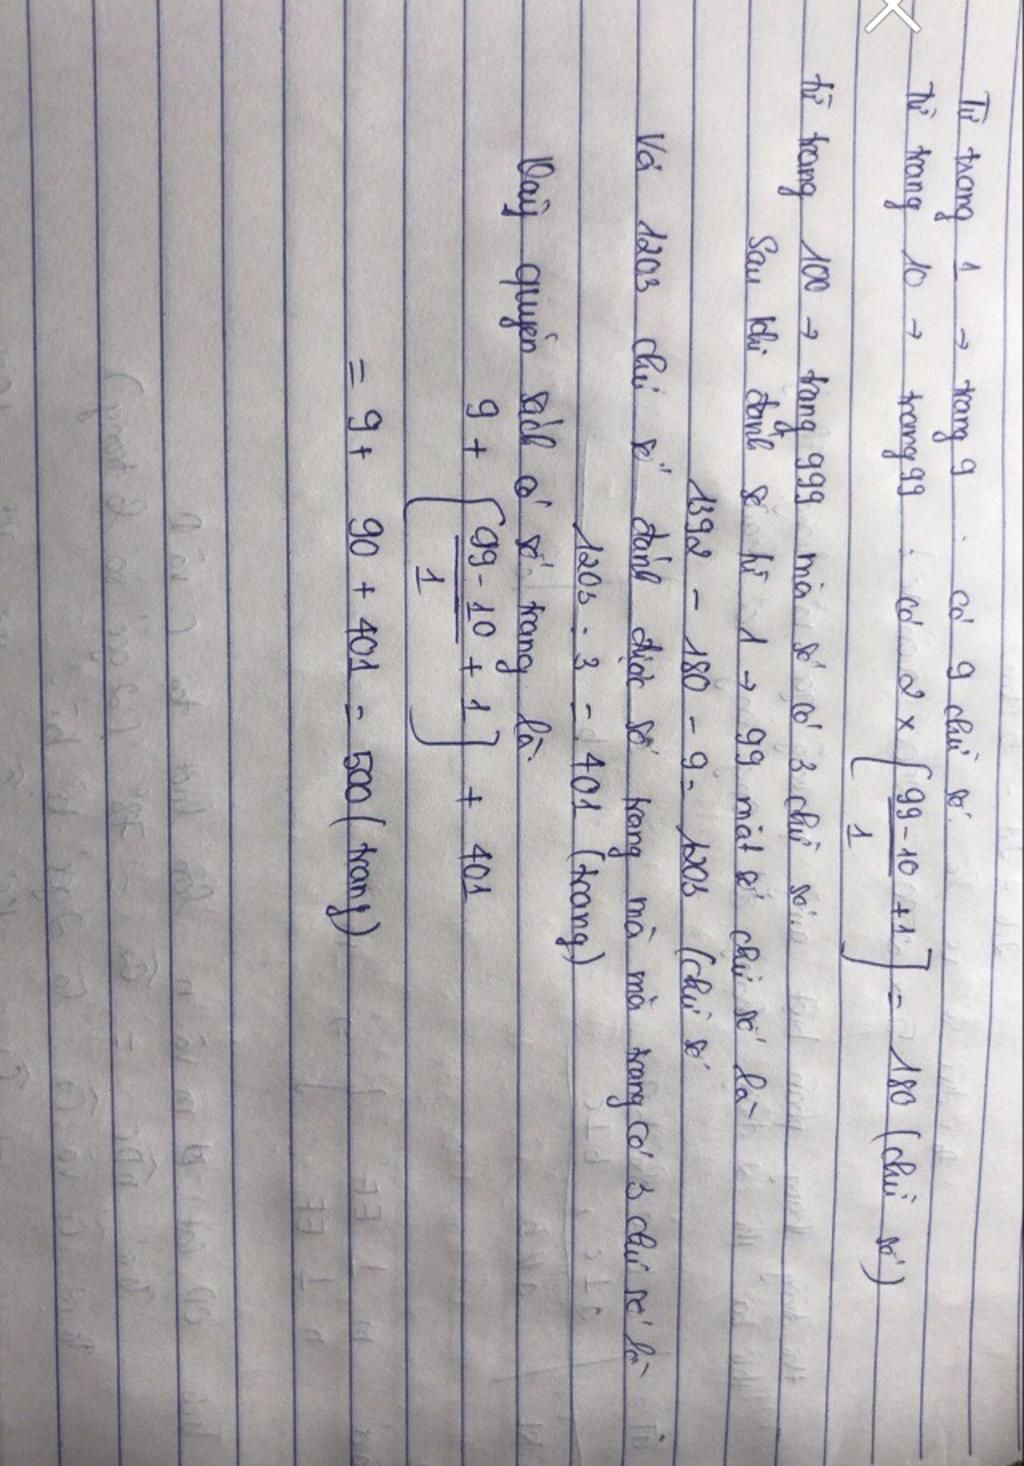 Từ trang 1 → trang 9 : có 9 chữ số.
Từ trang 10 → trang 99 : có 2 x [ 99 - 10 + 1 ] = 180 (chữ số)
1
từ trang 100 → trang 999 mà số có 3 chữ số
Sau khi đánh số từ 1 → 99 mất số chữ số là
1392 - 180 - 9 = 1203 (chữ số
Và 1203 chữ số đánh được số trang mà mà trang có 3 chữ số là
1203 : 3 = 401 (trang)
Vậy quyển sách có số trang là
9 + [ 99 - 10 + 1 ] + 401
1
= 9 + 90 + 401 = 500 (trang)